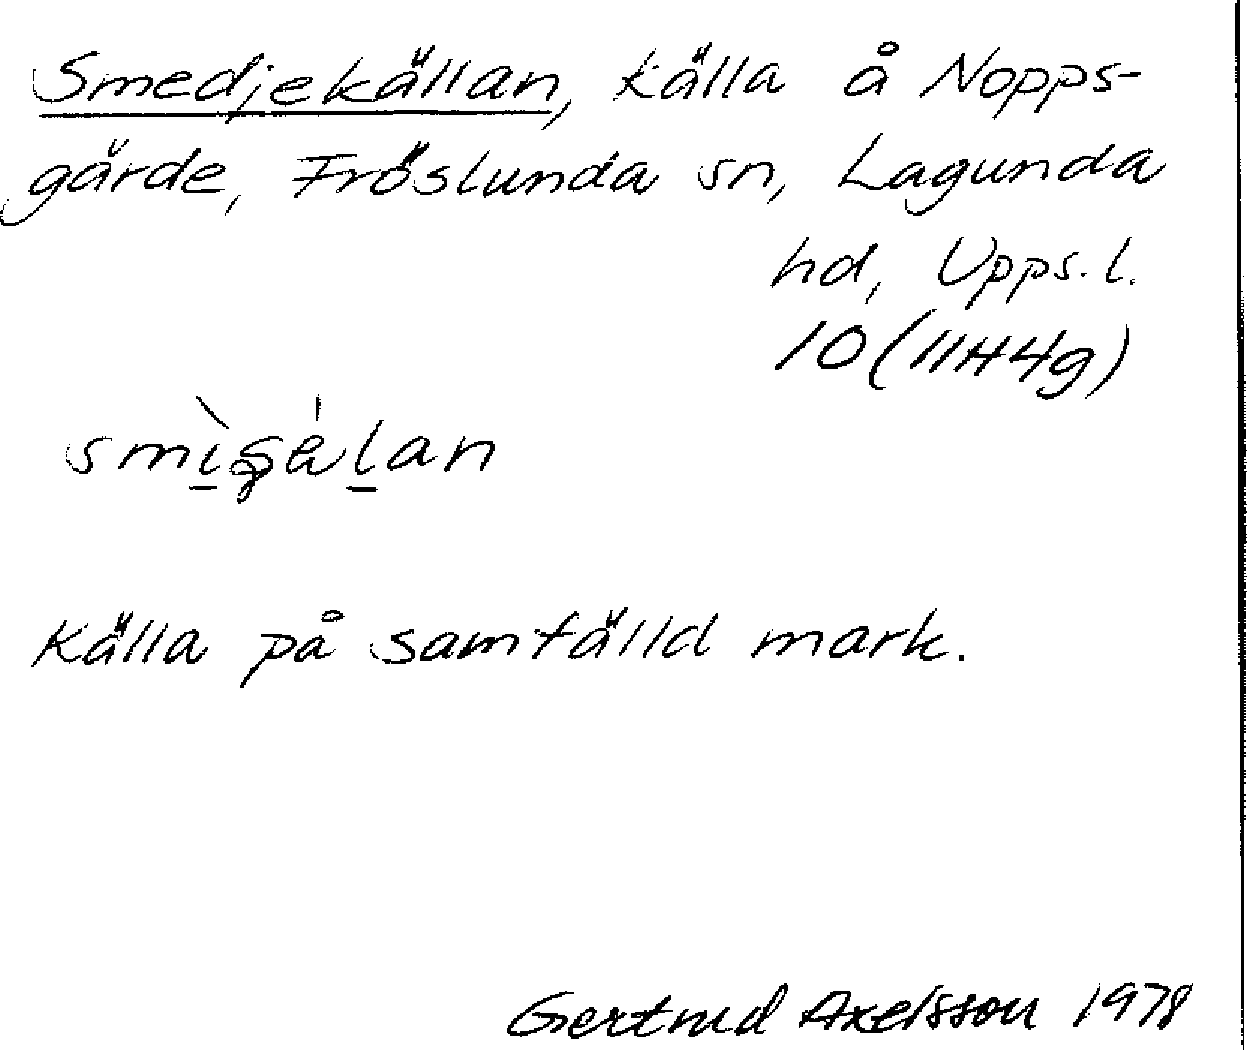 Smedjekällan, källa å Nopps-
gärde, Fröslunda sn, Lagunda
hd, Upps. l.
10 (11H4g)
Källa på samfälld mark.
Gertrud Axelsson 1978